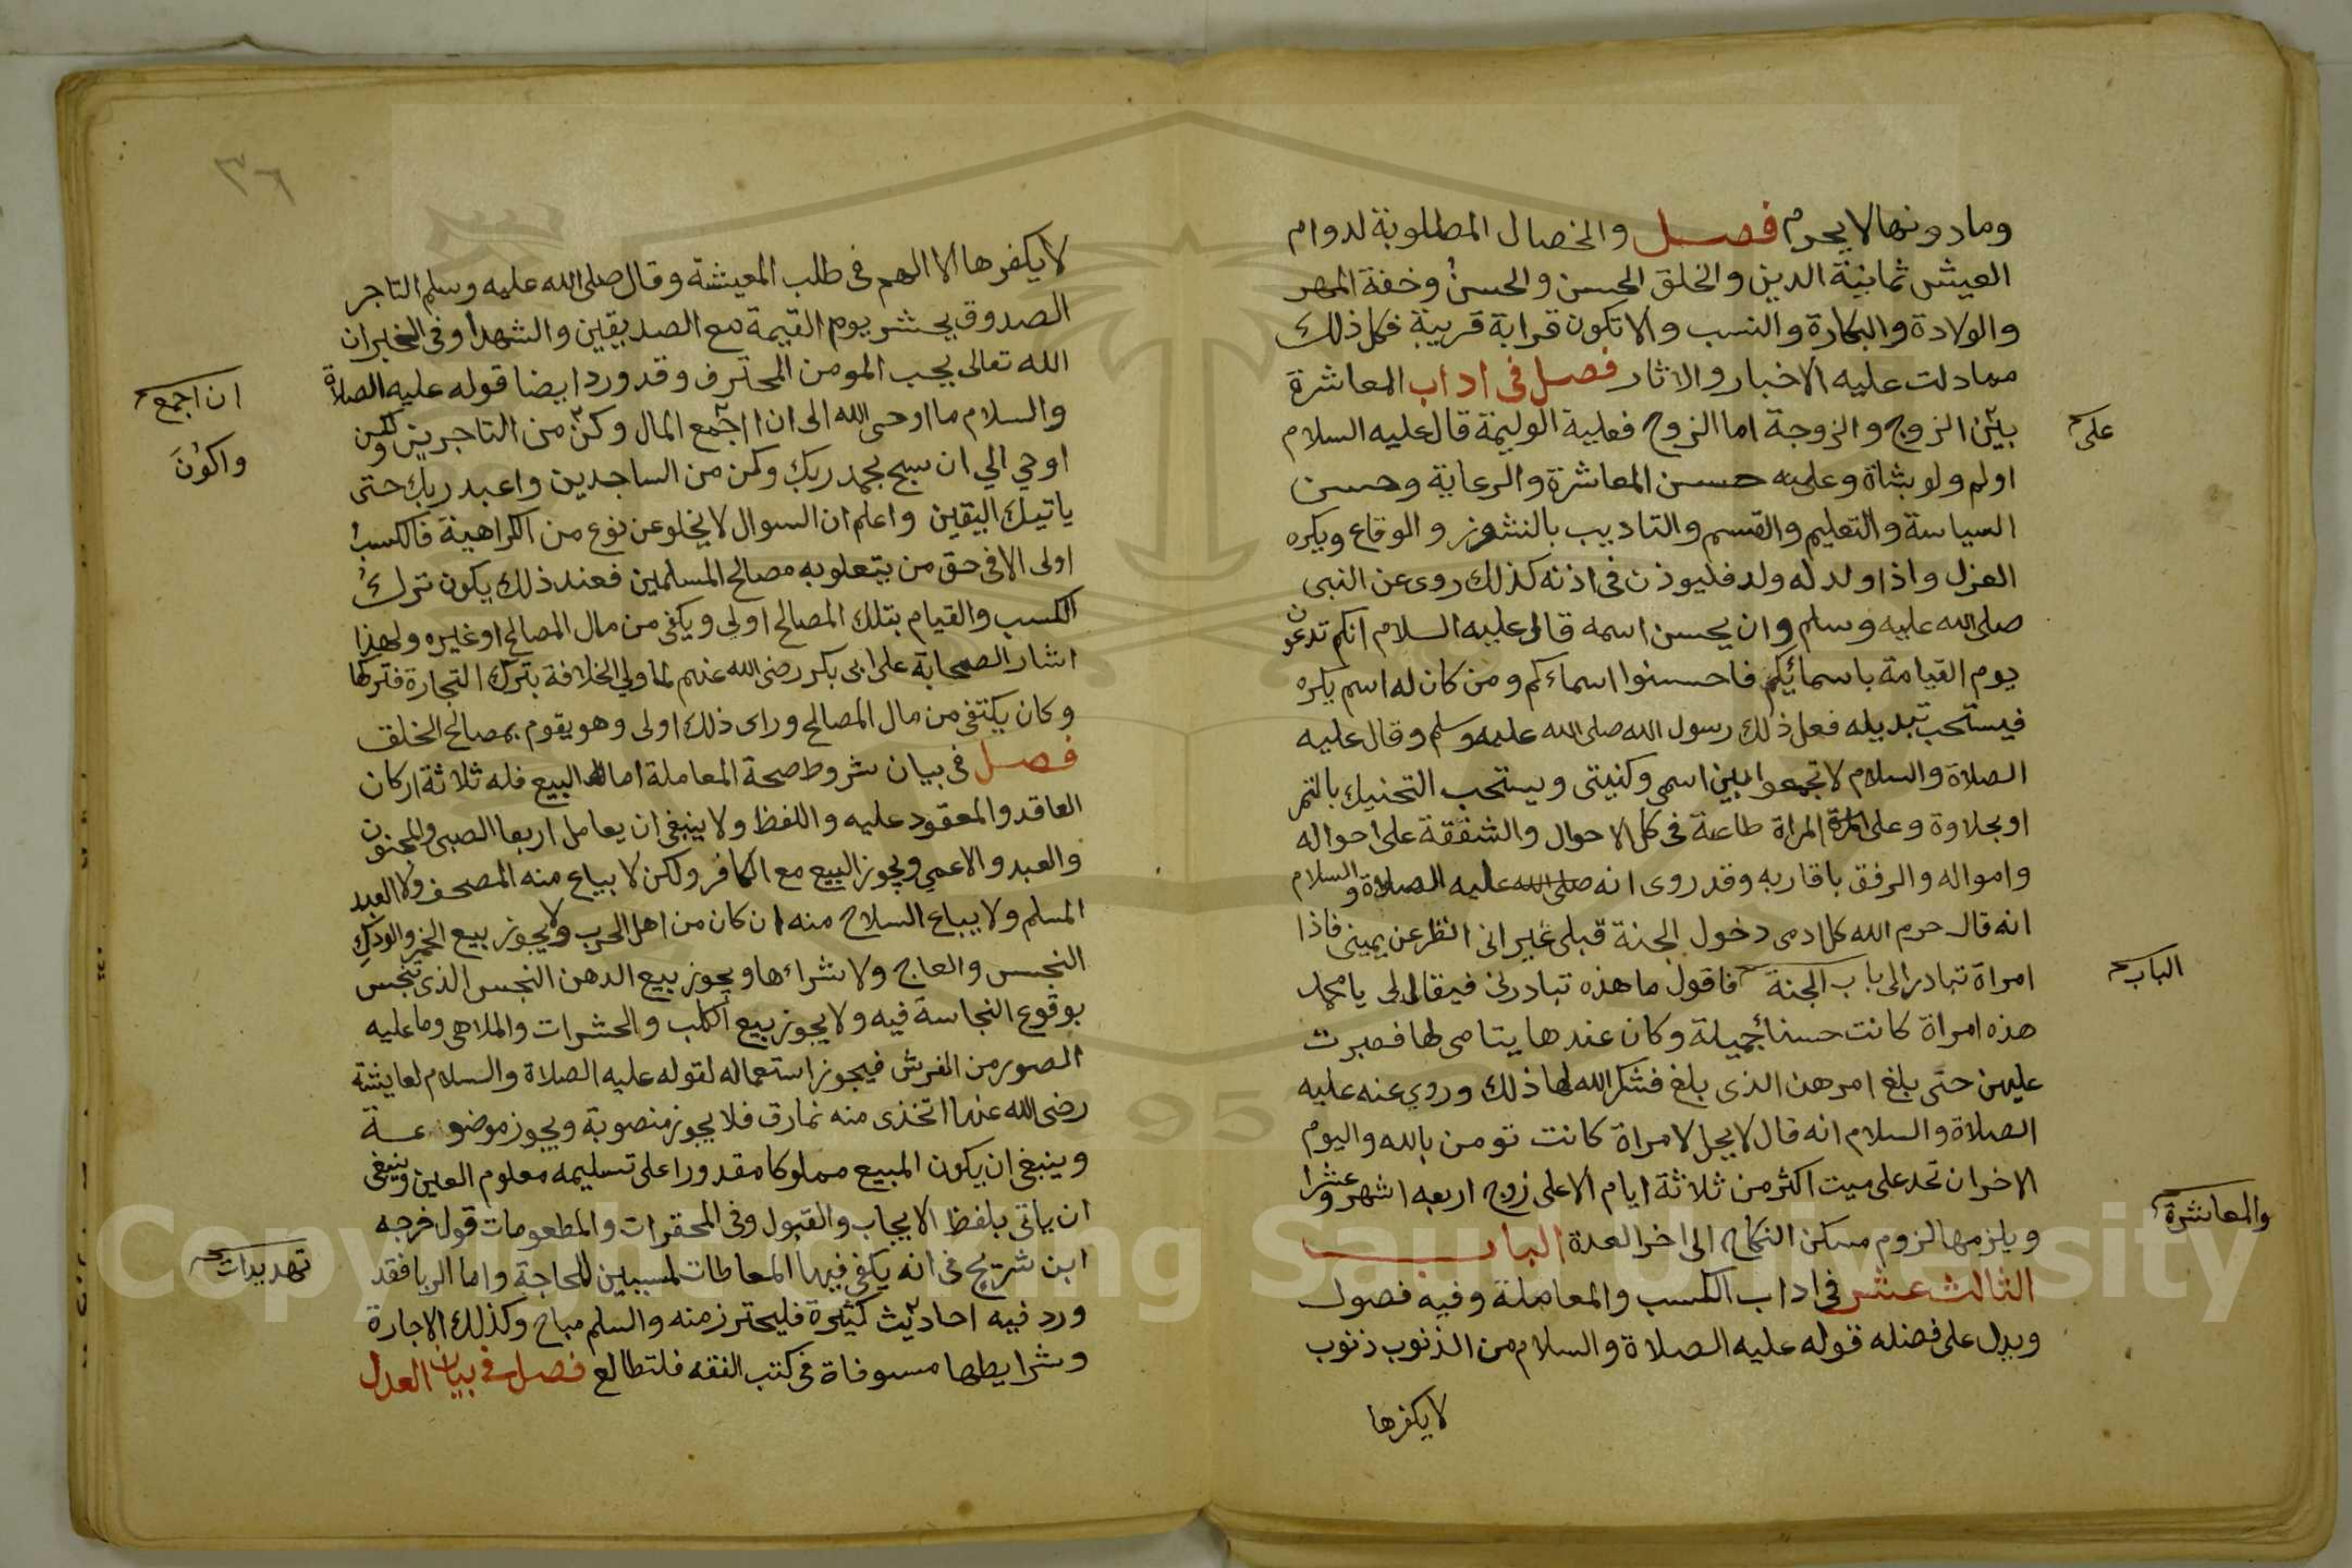 وما دونها لا يحرم فصل والخصال المطلوبة لدوام
العيش ثمانية الدين والخلق الحسن والحسن وخفة المهر
والولادة والبكارة والنسب والا تكون قرابة قريبة فكل ذلك
مما دلت عليه الاخبار والاثار فصل فى اداب المعاشرة
بين الزوج والزوجة اما الزوج فعليه الوليمة قال عليه السلام
على
اولم ولو بشاة وعليه حسن المعاشرة والرعاية وحسن
السياسة والتعليم والقسم والتاديب بالنشوز والوقاع ويكره
العزل واذا ولد له ولد فليوذن فى اذنه كذلك روى عن النبى
صلى الله عليه وسلم وان يحسن اسمه قال عليه السلام انكم تدعون
يوم القيامة باسمائكم فاحسنوا اسماءكم ومن كان له اسم يكره
فيستحب تبديله فعل ذلك رسول الله صلى الله عليه وسلم وقال عليه
الصلاة والسلام لا تجمعوا بين اسمى وكنيتى ويستحب التحنيك بالتمر
او بحلاوة وعلى المراة طاعة فى كل الاحوال والشفقة على احواله
وامواله والرفق باقاربه وقد روى انه صلى الله عليه الصلاة والسلام
انه قال حرم الله كل ادمى دخول الجنة قبلى غير انى انظر عن يمينى فاذا
امراة تبادر الى باب الجنة فاقول ما هذه تبادرنى فيقال لى يا محمد
الباب
هذه امراة كانت حسنا جميلة وكان عندها يتامى لها فصبرت
عليهن حتى بلغ امرهن الذى بلغ فشكر الله لها ذلك وروي عنه عليه
الصلاة والسلام انه قال لا يحل لامراة كانت تومن بالله واليوم
الاخر ان تحد على ميت اكثر من ثلاثة ايام الا على زوج اربعه اشهر وعشرا
ويلزمها لزوم مسكن النكاح الى اخر العدة الباب
والمعاشرة
الثالث عشر فى اداب الكسب والمعاملة وفيه فصول
ويدل على فضله قوله عليه الصلاة والسلام من الذنوب ذنوب
لا يكفرها
٣٦
لا يكفرها الا الهم فى طلب المعيشة وقال صلى الله عليه وسلم التاجر
الصدوق يحشر يوم القيمة مع الصديقين والشهدا وفى الخبر ان
الله تعالى يحب المومن المحترف وقد ورد ايضا قوله عليه الصلاة
ان اجمع
والسلام ما اوحى الله الى ان اجمع المال وكن من التاجرين ولكن
واكون
اوحي الي ان سبح بحمد ربك وكن من الساجدين واعبد ربك حتى
ياتيك اليقين واعلم ان السوال لا يخلو عن نوع من الكراهية فالكسب
اولى الا فى حق من يتعلو به مصالح المسلمين فعند ذلك يكون ترك
الكسب والقيام بتلك المصالح اولى ويكفى من مال المصالح او غيره ولهذا
اشار الصحابة على ابى بكر رضى الله عنهم لما ولي الخلافة بترك التجارة فتركها
وكان يكتفى من مال المصالح وراى ذلك اولى وهو يقوم بمصالح الخلق
فصل فى بيان شروط صحة المعاملة اما البيع فله ثلاثة اركان
العاقد والمعقود عليه واللفظ ولا ينبغى ان يعامل اربعا الصبى والمجنون
والعبد والاعمي ويجوز البيع مع الكافر ولكن لا يباع منه المصحف ولا العبد
المسلم ولا يباع السلاح منه ان كان من اهل الحرب ولا يجوز بيع الخمر والودك
النجس والعاج ولا شراءها ويجوز بيع الدهن النجس الذى تنجس
بوقوع النجاسة فيه ولا يجوز بيع الكلب والحشرات والملاهى وما عليه
الصور من الفرش فيجوز استعماله لقوله عليه الصلاة والسلام لعايشة
رضى الله عنها اتخذى منه نمارق فلا يجوز منصوبة ويجوز موضوعة
وينبغى ان يكون المبيع مملوكا مقدورا على تسليمه معلوم العين وينبغى
ان ياتى بلفظ الايجاب والقبول وفى المحقرات والمطعومات قول خرجه
ابن شريح فى انه يكفى فيها المعاطات للحاجة واما الربا فقد
تهديدات
ورد فيه احاديث كثيرة فليحترز منه والسلم مباح وكذلك الاجارة
وشرايطها مسوفاة فى كتب الفقه فلتطالع فصل فى بيان العدل
Copyright © King Saud University